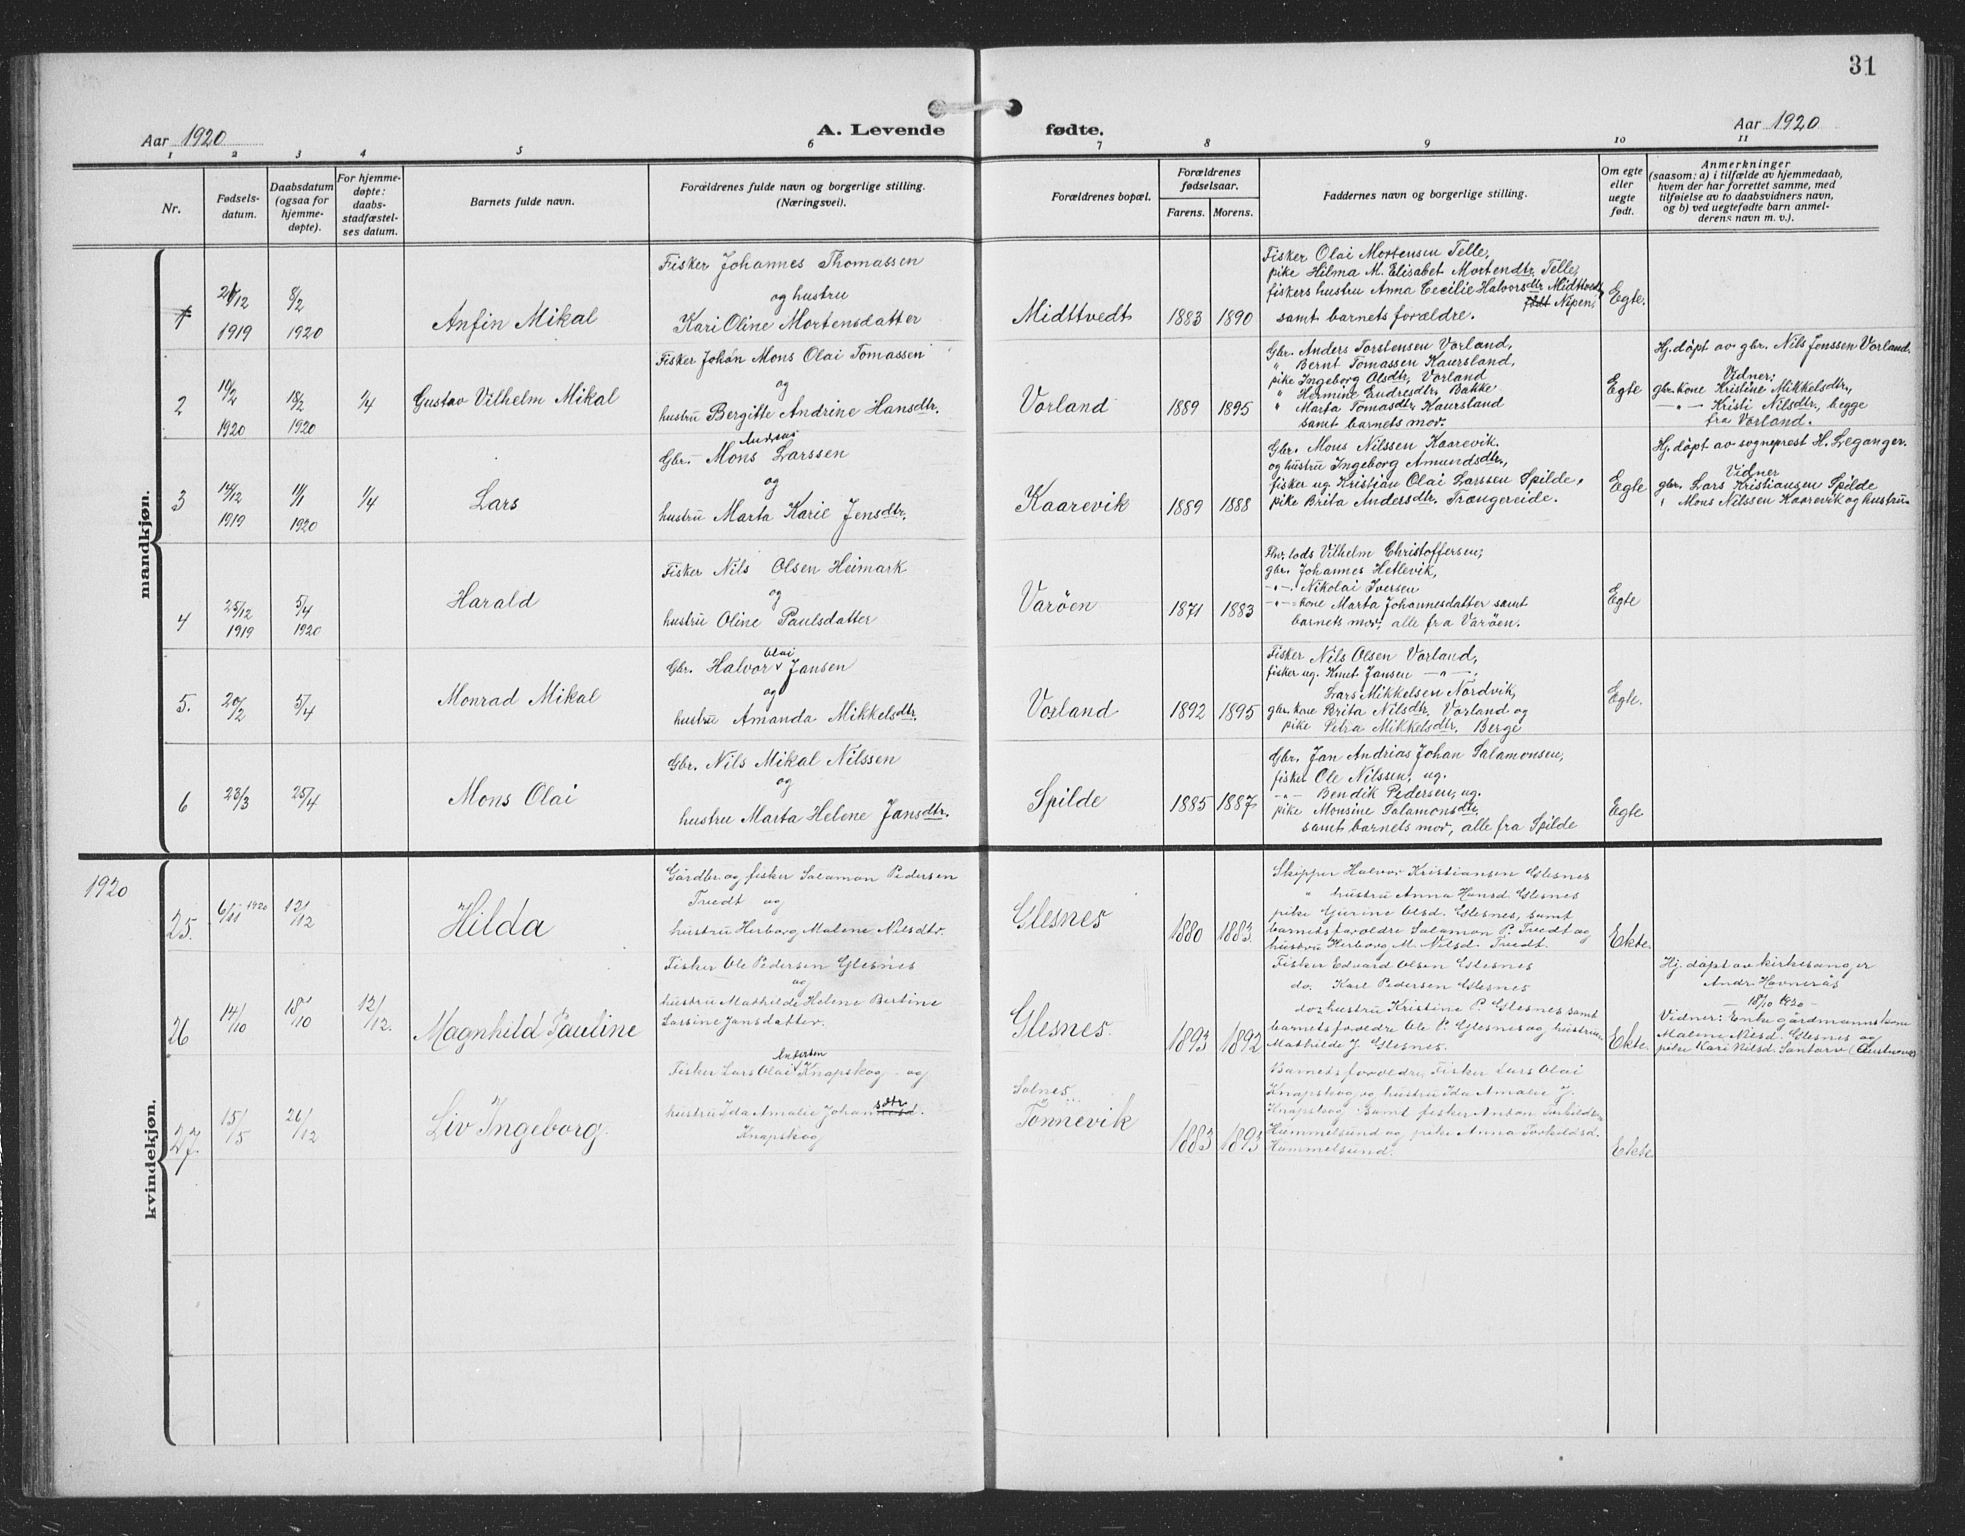 31
Aar 1920
A. Levende fødte.
Aar 1920
1 2 3 4 5 6 7 8 9 10 11
Nr.
Fødsels-
datum.
Daabsdatum
(ogsaa for
hjemme-
døpte).
For hjemme-
døpte:
daabs-
stadfæstel-
ses datum.
Barnets fulde navn.
Forældrenes fulde navn og borgerlige stilling.
(Næringsvei).
Forældrenes bopæl.
Forældrenes
fødselsaar.
Farens. Morens.
Faddernes navn og borgerlige stilling.
Om egte
eller
uegte
født.
Anmerkninger
(saasom: a) i tilfælde av hjemmedaab,
hvem der har forrettet samme, med
tilføielse av to daabsvidners navn,
og b) ved uegtefødte barn anmel-
derens navn m. v.).
mandkjøn.
1
21/12
1919
8/2
1920
Anfin Mikal
Fisker Johannes Thomassen
og hustru
Kari Oline Mortensdatter
Midttvedt
1883 1890
Fisker Olai Mortensen Telle,
pike Hilma M. Elisabet Mortendtr. Telle,
fiskers hustru Anna Cecilie Halvorsdtr Midttvedt,
født Nipen,
samt barnets forældre.
Egte.
2
10/2
1920
18/2
1920
1/4
Gustav Vilhelm Mikal
Fisker Johan Mons Olai Tomassen
og
hustru Bergitte Andrine Hansdtr.
Vorland
1889 1895
Gbr. Anders Torstensen Vorland,
" Bernt Tomassen Kaursland,
pike Ingeborg Olsdtr. Vorland
" Hermine Endresdtr. Bakke
" Marta Tomasdtr. Kaursland
samt barnets mor.
Egte
Hj. døpt av gbr. Nils Jenssen Vorland.
Vidner:
gbr. kone Kristine Mikkelsdtr.,
-"- Kristi Nilsdtr., begge
fra Vorland.
3
14/12
1919
11/1
1920
1/4
Lars
Andreas
Gbr. Mons Larssen
og
hustru Marta Karie Jensdtr.
Kaarevik
1889 1888
Gbr. Mons Nilssen Kaarevik.
og hustru Ingeborg Amundsdtr,
fisker ug. Kristian Olai Larssen Spilde,
pike Brita Andersdtr. Trængereide.
Egte
Hj. døpt av sogneprest H. Leganger.
Vidner
gbr. Lars Kristiansen Spilde
" Mons Nilssen Kaarevik og hustru.
4
25/12
1919
5/4
1920
Harald
Fisker Nils Olsen Heimark
og
hustru Oline Paulsdatter
Varøen
1871 1883
lods Vilhelm Christoffersen,
gbr. Johannes Hetlevik,
-"- Nikolai Iversen
-"- kone Marta Johannesdatter samt
barnets mor, alle fra Varøen.
Egte
5.
20/2
5/4
Monrad Mikal
Olai
Gbr. Halvor v Jansen
og
hustru Amanda Mikkelsdtr.
Vorland
1892 1895
Fisker Nils Olsen Vorland,
fisker ug. Knut Jansen -"-,
Lars Mikkelsen Nordvik,
gbr. kone Brita Nilsdtr. Vorland og
pike Petra Mikkelsdtr. Berge
Egte.
6
23/3
25/4
Mons Olai
Gbr. Nils Mikal Nilssen
og
hustru Marta Helene Jansdtr.
Spilde
1885 1887
Gbr. Jan Andrias Johan Salamonsen,
fisker Ole Nilssen, ug.
-"- Bendik Pedersen, ug.
pike Monsine Salamonsdtr.
samt barnets mor, alle fra Spilde
Egte
kvindekjøn.
1920
25.
6/11 1920
12/12
Hilda
Gårdbr. og fisker Salamon Pedersen
Tredt og
hustru Herborg Malene Nilsdtr.
Glesnes
1880 1883.
Skipper Halvor Kristiansen Glesnes
" hustru Anna Hansd. Glesnes
pike Gurine Olsd. Glesnes, samt
barnets foreldre Salamon P. Tredt og
hustru Herborg M. Nilsd. Tredt.
Ekte.
26
14/10
18/10
12/12.
Magnhild Pauline
Fisker Ole Pedersen Glesnes
og
hustru Mathilde Helene Bertine
Larsine Jansdatter.
Glesnes.
1893 1892
Fisker Edvard Olsen Glesnes
do. Karl Pedersen Glesnes
do. hustru Kristine P. Glesnes samt
barnets foreldre Ole P. Glesnes og hustru
Mathilde J. Glesnes.
Ekte.
Hj. døpt av kirkesanger
Andr. Havnerås
- 18/10 1920 -
Vidner: Enke gårdmannskone
Malene Nilsd. Glesnes og
pike Kari Nilsd. Santorv (Austevoll)
27.
15/5
26/12
Liv Ingeborg.
Andersen
Fisker Lars Olai Knapskog - og
hustru Ida Amalie Johansdtr.
Knapskog
Solnes
Tønnevik
1883 1893
Barnets foreldre, Fisker Lars Olai
Knapskog og hustru Ida Amalie J.
Knapskog samt fisker Anton
Hummelsund og pike Anna Torkildsd.
Hummelsund.
Ekte